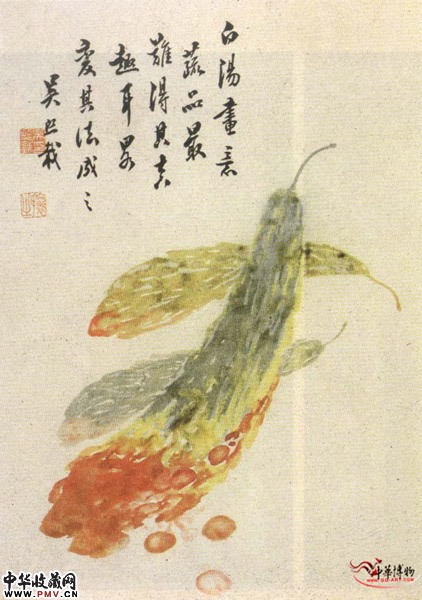 白陽畫意
蔬品最
難得其真
趣耳畧
變其法成之
吳熙載
中华收藏网
www.PMV.cn
中華博物
www.GG-ART.com